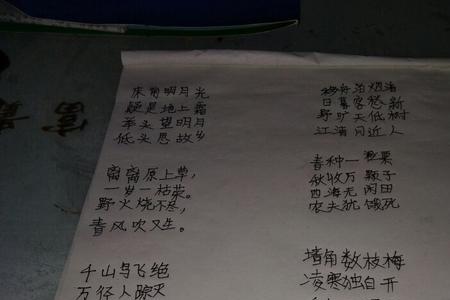 床前明月光
疑是地上霜
举头望明月
低头思故乡
离离原上草，
一岁一枯荣。
野火烧不尽，
春风吹又生。
千山鸟飞绝
万径人踪灭
移舟泊烟渚
日暮客愁新
野旷天低树
江清月近人
春种一粒粟
秋收万颗子
四海无闲田
农夫犹饿死
墙角数枝梅
凌寒独自开